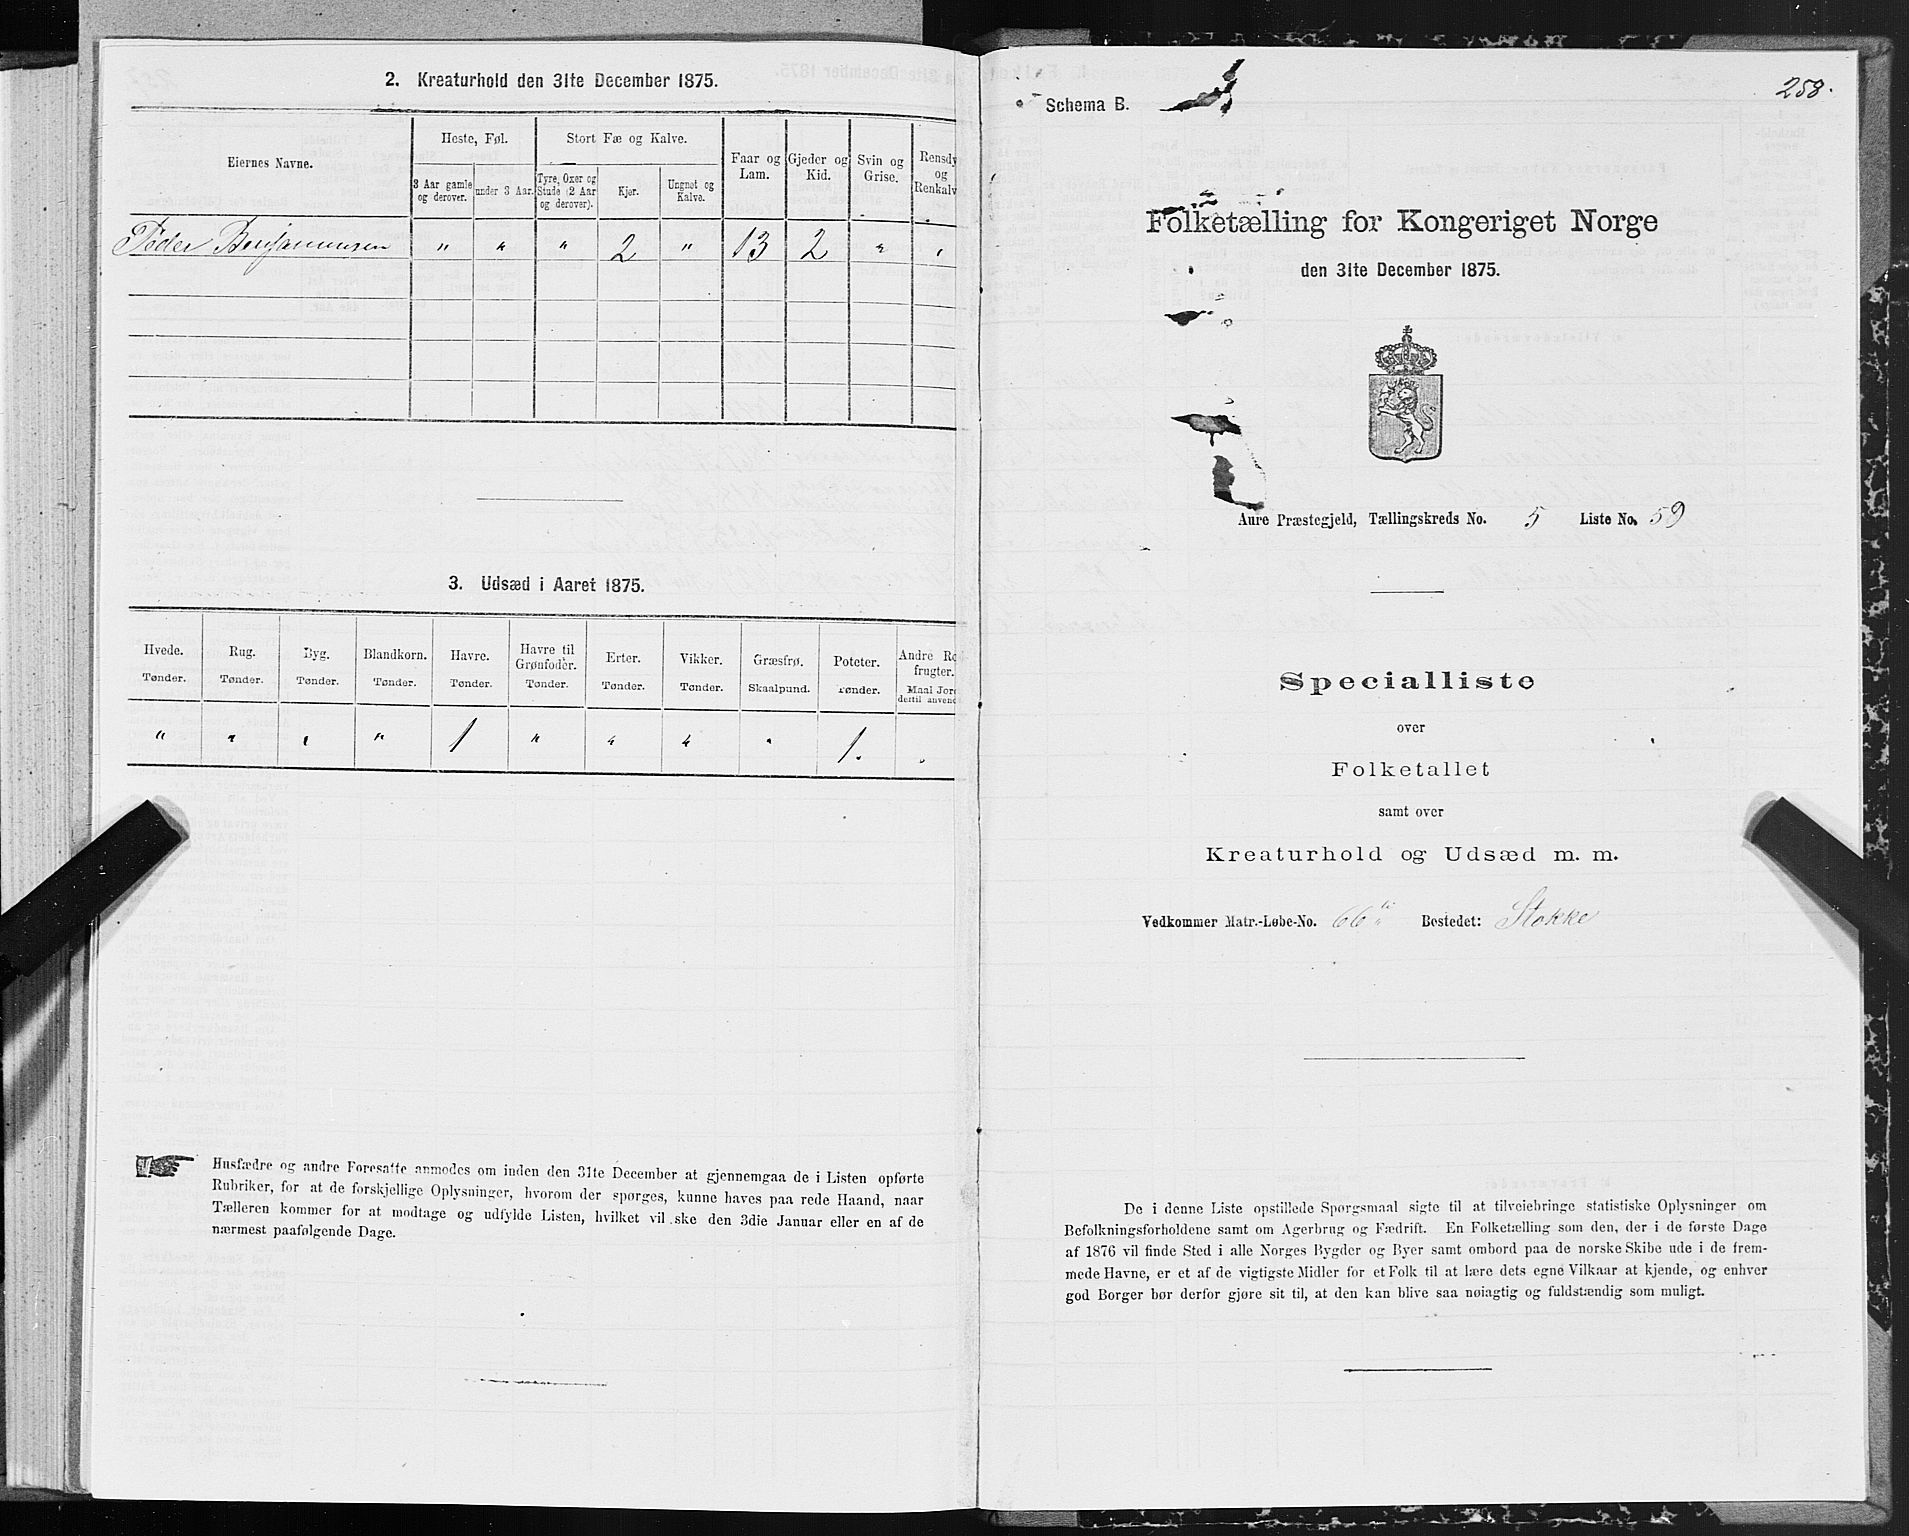 2. Kreaturhold den 31te December 1875.
Eiernes Navne.
Heste, Føl.
Stort Fæ og Kalve.
Faar og Lam.
Gjeder og Kid.
Svin og Grise.
Rensdy
og
Renkalv
3 Aar gamle og derover.
under 3 Aar.
Tyre, Oxer og Stude (2 Aar og derover).
Kjør.
Ungnøt og Kalve.
Peder Benjaminsen " " " 2 " 13 2 " "
3. Udsæd i Aaret 1875.
Hvede. Rug. Byg. Blandkorn. Havre. Havre til Grønfoder. Erter. Vikker. Græsfrø. Poteter. Andre Ro frugter.
Tønder. Tønder. Tønder. Tønder. Tønder. Tønder. Tønder. Tønder. Skaalpund. Tønder. Maal Jord dertil anvend
" " " " 1 " " " " 1. "
Husfædre og andre Foresatte anmodes om inden den 31te December at gjennemgaa de i Listen opførte
Rubriker, for at de forskjellige Oplysninger, hvorom der spørges, kunne haves paa rede Haand, naar
Tælleren kommer for at modtage og udfylde Listen, hvilket vil ske den 3die Januar eller en af de
nærmest paafølgende Dage.
258.
Schema B.
Folketælling for Kongeriget Norge
den 31te December 1875.
Aure Præstegjeld, Tællingskreds No. 5 Liste No. 59
Specialliste
over
Folketallet
samt over
Kreaturhold og Udsæd m. m.
Vedkommer Matr.-Løbe-No. 66 Bostedet: Stokke
De i denne Liste opstillede Spørgsmaal sigte til at tilveiebringe statistiske Oplysninger om
Befolkningsforholdene samt om Agerbrug og Fædrift. En Folketælling som den, der i de første Dage
af 1876 vil finde Sted i alle Norges Bygder og Byer samt ombord paa de norske Skibe ude i de frem-
mede Havne, er et af de vigtigste Midler for et Folk til at lære dets egne Vilkaar at kjende, og enhver
god Borger bør derfor gjøre sit til, at den kan blive saa nøiagtig og fuldstændig som muligt.